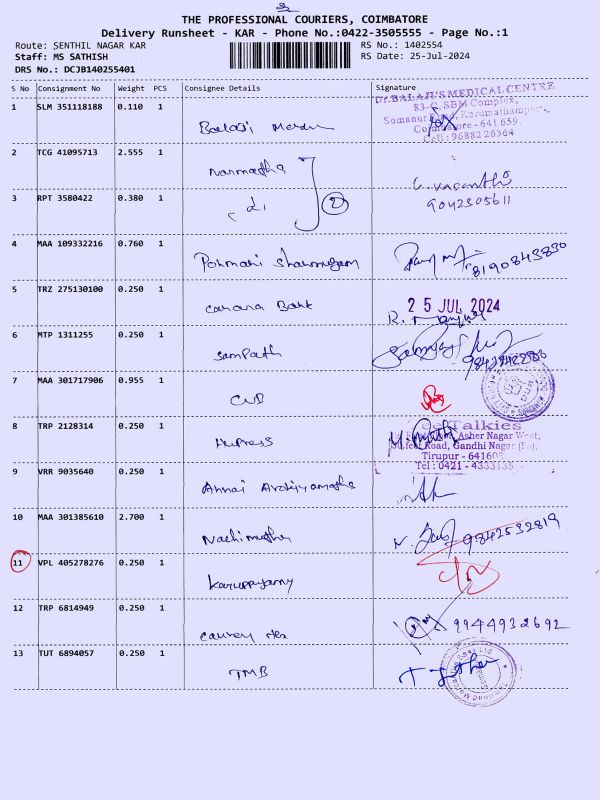 THE PROFESSIONAL COURIERS, COIMBATORE
Delivery Runsheet - KAR - Phone No.:0422-3505555 - Page No.:1
Route: SENTHIL NAGAR KAR
RS No.: 1402554
Staff: MS SATHISH
RS Date: 25-Jul-2024
DRS No.: DCJB140255401
S No Consignment No Weight PCS Consignee Details Signature
1 SLM 351118188 0.110 1
Dr.BALAJI'S MEDICAL CENTRE
83-C, SBM Complex,
Somanur Road, Karumathampatti,
Coimbatore - 641 659.
Cell: 96882 26364
2 TCG 41095713 2.555 1 Narmadha
2
U. Vasanthi
3 RPT 3580422 0.380 1
9042305611
4 MAA 109332216 0.760 1 Ponmani Shanmugam
8190843830
5 TRZ 275130100 0.250 1 Canara Bank
25 JUL 2024
6 MTP 1311255 0.250 1 Sampath
7 MAA 301717906 0.955 1 CUB
8 TRP 2128314 0.250 1
Cell Talkies
Asher Nagar West,
Road, Gandhi Nagar
Tirupur - 641603
Tel : 0421 - 4333135
9 VRR 9035640 0.250 1 Annai
10 MAA 301385610 2.700 1 Nachimuthu
9842532819
11 VPL 405278276 0.250 1 Karuppyamy
12 TRP 6814949 0.250 1
9944932692
13 TUT 6894057 0.250 1 TMB